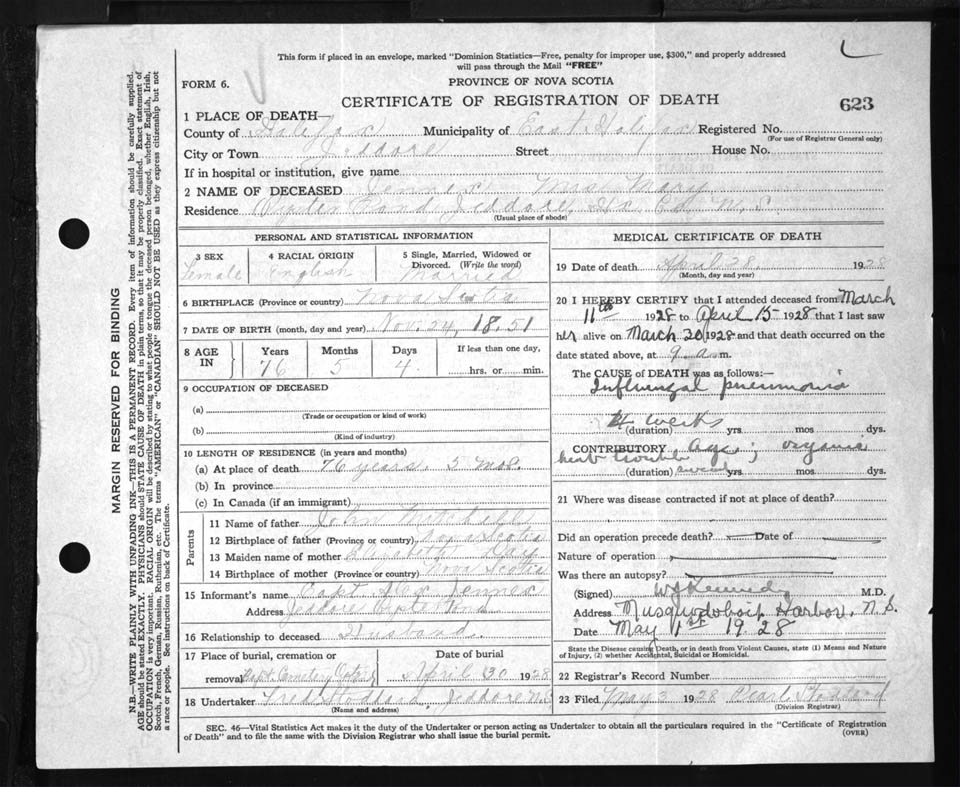 This form if placed in an envelope, marked "Dominion Statistics—Free, penalty for improper use, $300," and properly addressed
will pass through the Mail "FREE"
FORM 6.
PROVINCE OF NOVA SCOTIA
CERTIFICATE OF REGISTRATION OF DEATH
623
1 PLACE OF DEATH—
County of Halifax Municipality of East Halifax Registered No.
(For use of Registrar General only)
City or Town Jeddore Street House No.
If in hospital or institution, give name
2 NAME OF DECEASED Jennex Mrs Mary
Residence Oyster Pond Jeddore, Hx. Co. N. S.
(Usual place of abode)
PERSONAL AND STATISTICAL INFORMATION
3 SEX 4 RACIAL ORIGIN 5 Single, Married, Widowed or Divorced. (Write the word)
Female English Married
6 BIRTHPLACE (Province or country) Nova Scotia
7 DATE OF BIRTH (month, day and year) Nov. 24, 1851
8 AGE IN Years Months Days If less than one day,
76 5 4 hrs. or min.
9 OCCUPATION OF DECEASED
(a)
(Trade or occupation or kind of work)
(b)
(Kind of industry)
10 LENGTH OF RESIDENCE (in years and months)
(a) At place of death 76 years, 5 mos.
(b) In province
(c) In Canada (if an immigrant)
Parents
11 Name of father John Mitchell
12 Birthplace of father (Province or country) Nova Scotia
13 Maiden name of mother Elizabeth Day
14 Birthplace of mother (Province or country) Nova Scotia
15 Informant's name Capt Jennex
Address Jeddore Oyster Pond
16 Relationship to deceased Husband.
17 Place of burial, cremation or removal Date of burial
Bapt. Cemetery April 30 1928
18 Undertaker Fred Stoddard Jeddore N.S.
(Name and address)
MEDICAL CERTIFICATE OF DEATH
19 Date of death April 28. 1928
(Month, day and year)
20 I HEREBY CERTIFY that I attended deceased from March
11th 1928 to April 15 1928 that I last saw
her alive on March 30 1928 and that death occurred on the
date stated above, at 9 a m.
The CAUSE of DEATH was as follows:—
Influenzal pneumonia
4 weeks
(duration) yrs. mos. dys.
CONTRIBUTORY Age; organic
heart trouble
(duration) several yrs mos. dys.
21 Where was disease contracted if not at place of death?
Did an operation precede death? Date of
Nature of operation
Was there an autopsy?
(Signed) Kennedy M.D.
Address Musquodoboit Harbor, N.S.
Date May 1st 1928
State the Disease causing Death, or in death from Violent Causes, state (1) Means and Nature
of Injury, (2) whether Accidental, Suicidal or Homicidal.
22 Registrar's Record Number
23 Filed May 3 1928 Pearl Stoddard
(Division Registrar)
SEC. 46—Vital Statistics Act makes it the duty of the Undertaker or person acting as Undertaker to obtain all the particulars required in the "Certificate of Registration
of Death" and to file the same with the Division Registrar who shall issue the burial permit.
(OVER)
MARGIN RESERVED FOR BINDING
N.B.—WRITE PLAINLY WITH UNFADING INK—THIS IS A PERMANENT RECORD. Every item of information should be carefully supplied.
AGE should be stated EXACTLY. PHYSICIANS should STATE CAUSE OF DEATH in plain terms, so that it may be properly classified. Exact statement of
OCCUPATION is very important. RACIAL ORIGIN will be described by stating to what people or tongue the deceased person belonged, whether English, Irish,
Scotch, French, German, Russian, Ruthenian, etc. The terms "AMERICAN" or "CANADIAN" SHOULD NOT BE USED as they express citizenship but not
a race or people. See instructions on back of Certificate.